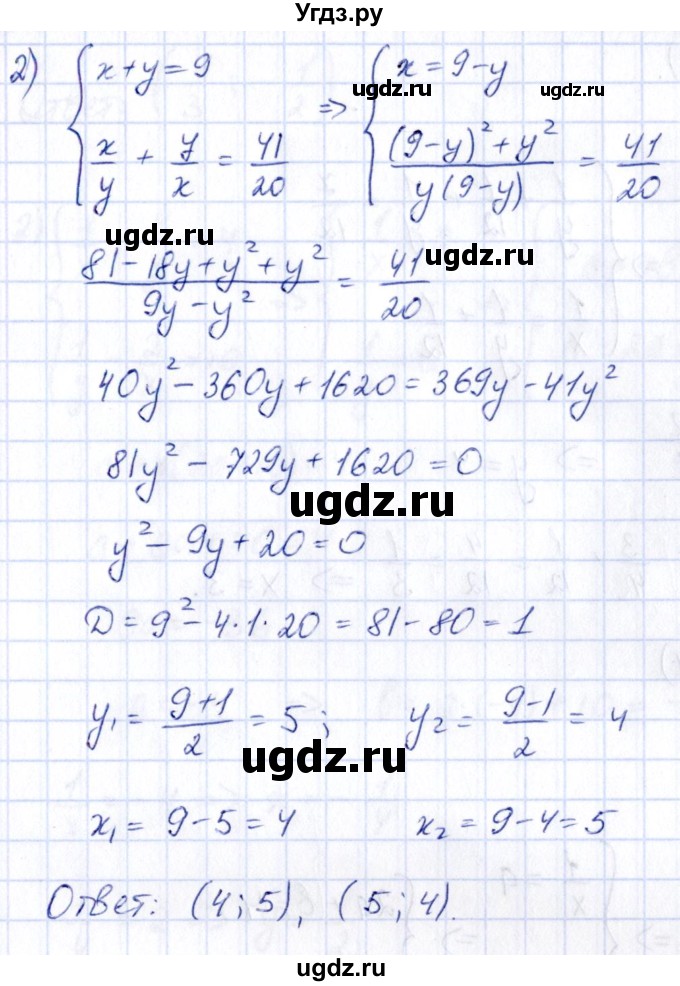 Угдз.ру
2) { x+y=9 => { x=9-y
x/y + y/x = 41/20 ((9-y)²+y²)/(y(9-y)) = 41/20
ugdz.ru ugdz.ru
ugdz.ru ugdz.ru
(81-18y+y²+y²)/(9y-y²) = 41/20
40y²-360y+1620=369y-41y²
81y²-729y+1620=0
ugdz.ru
y²-9y+20=0
D=9²-4·1·20=81-80=1
y₁=(9+1)/2=5; y₂=(9-1)/2=4
ugdz.ru
x₁=9-5=4 x₂=9-4=5
Ответ: (4;5), (5;4).
ugdz.ru
ugdz.ru